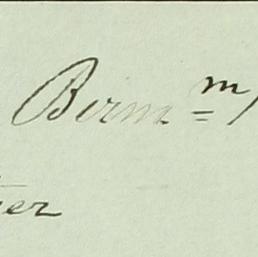 Birm=m/
er